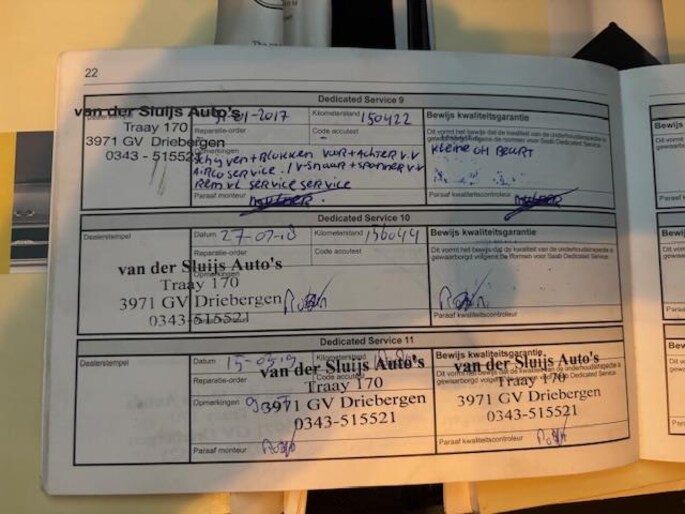 22
Dedicated Service 9
van der Sluijs Auto's
Traay 170
3971 GV Driebergen
0343 - 515521
-01-2017
Kilometerstand 150422
Reparatie-order
Code accutest
Opmerkingen
Schijven + Blokken voor + Achter v.v
Airco service. / v-snaar + spanner v.v
Remvl service service
Paraaf monteur
Bewijs kwaliteitsgarantie
Dit vormt het bewijs dat de kwaliteit van de onderhoudsinspectie is
gewaarborgd volgens de normen voor Saab Dedicated Service.
Kleine OH Beurt
Paraaf kwaliteitscontroleur
Dedicated Service 10
Dealerstempel
van der Sluijs Auto's
Traay 170
3971 GV Driebergen
0343-515521
Datum 27-02-18
Kilometerstand 156044
Reparatie-order
Code accutest
Opmerkingen
Bewijs kwaliteitsgarantie
Dit vormt het bewijs dat de kwaliteit van de onderhoudsinspectie is
gewaarborgd volgens de normen voor Saab Dedicated Service.
Paraaf kwaliteitscontroleur
Dedicated Service 11
Dealerstempel
Datum 15-03-19
Kilometerstand
Reparatie-order
Code accutest
Opmerkingen
van der Sluijs Auto's
Traay 170
3971 GV Driebergen
0343-515521
Paraaf monteur
Bewijs kwaliteitsgarantie
van der Sluijs Auto's
Traay 170
3971 GV Driebergen
0343-515521
Paraaf kwaliteitscontroleur